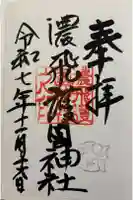 奉拝
濃飛護国神社
令和七年十一月十六日